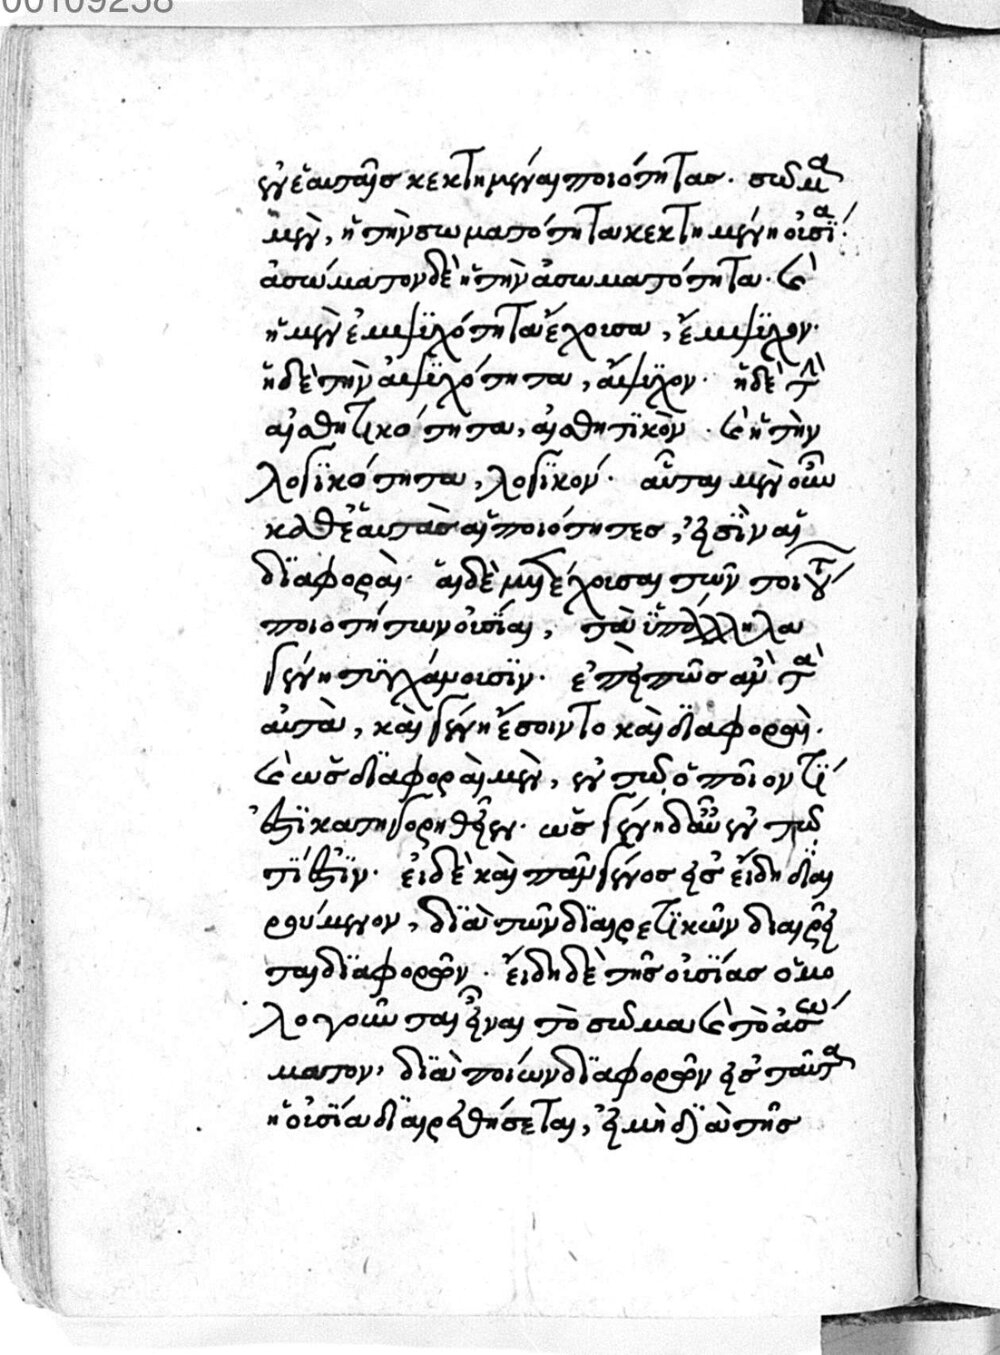 00109258
ἐν ἑαυταῖς κεκτημέναι ποιότητας. σῶμα
μὲν, ἡ τὴν σωματότητα κεκτημένη οὐσία.
ἀσώματον δὲ ἡ τὴν ἀσωματότητα. καὶ
ἡ μὲν ἐμψυχότητα ἔχουσα, ἔμψυχον.
ἡ δὲ τὴν ἀψυχότητα, ἄψυχον. ἡ δὲ τὴν
αἰσθητικότητα, αἰσθητικὸν. καὶ ἡ τὴν
λογικότητα, λογικόν. αὗται μὲν οὖν
καθ' ἑαυτὰς αἱ ποιότητες, εἰσὶν αἱ
διαφοραὶ. αἱ δὲ μὴ δέχουσαι τῶν τοιούτων
ποιοτήτων οὐσίαι, τὰ ὑπάλληλα
γένη τυγχάνουσιν. ἐπεὶ πῶς ἂν τὰ
αὐτὰ, καὶ γένη ἔσοιντο καὶ διαφοραὶ.
καὶ ὡς διαφοραὶ μὲν, ἐν τῷ ὁποῖον τί
ἐστι κατηγορηθεῖεν. ὡς γένη δ' αὖ ἐν τῷ
τί ἐστὶν. εἰ δὲ καὶ πᾶν γένος εἰς εἴδη διαι
ρούμενον, διὰ τῶν διαιρετικῶν διαιρεῖ
ται διαφορῶν. εἴδη δὲ τῆς οὐσίας ὁμο
λογοῦνται εἶναι τὸ σῶμα καὶ τὸ ἀσώ
ματον, διὰ ποίων διαφορῶν εἰς ταῦτα
ἡ οὐσία διαιρεθήσεται, εἰ μὴ διὰ τῆς